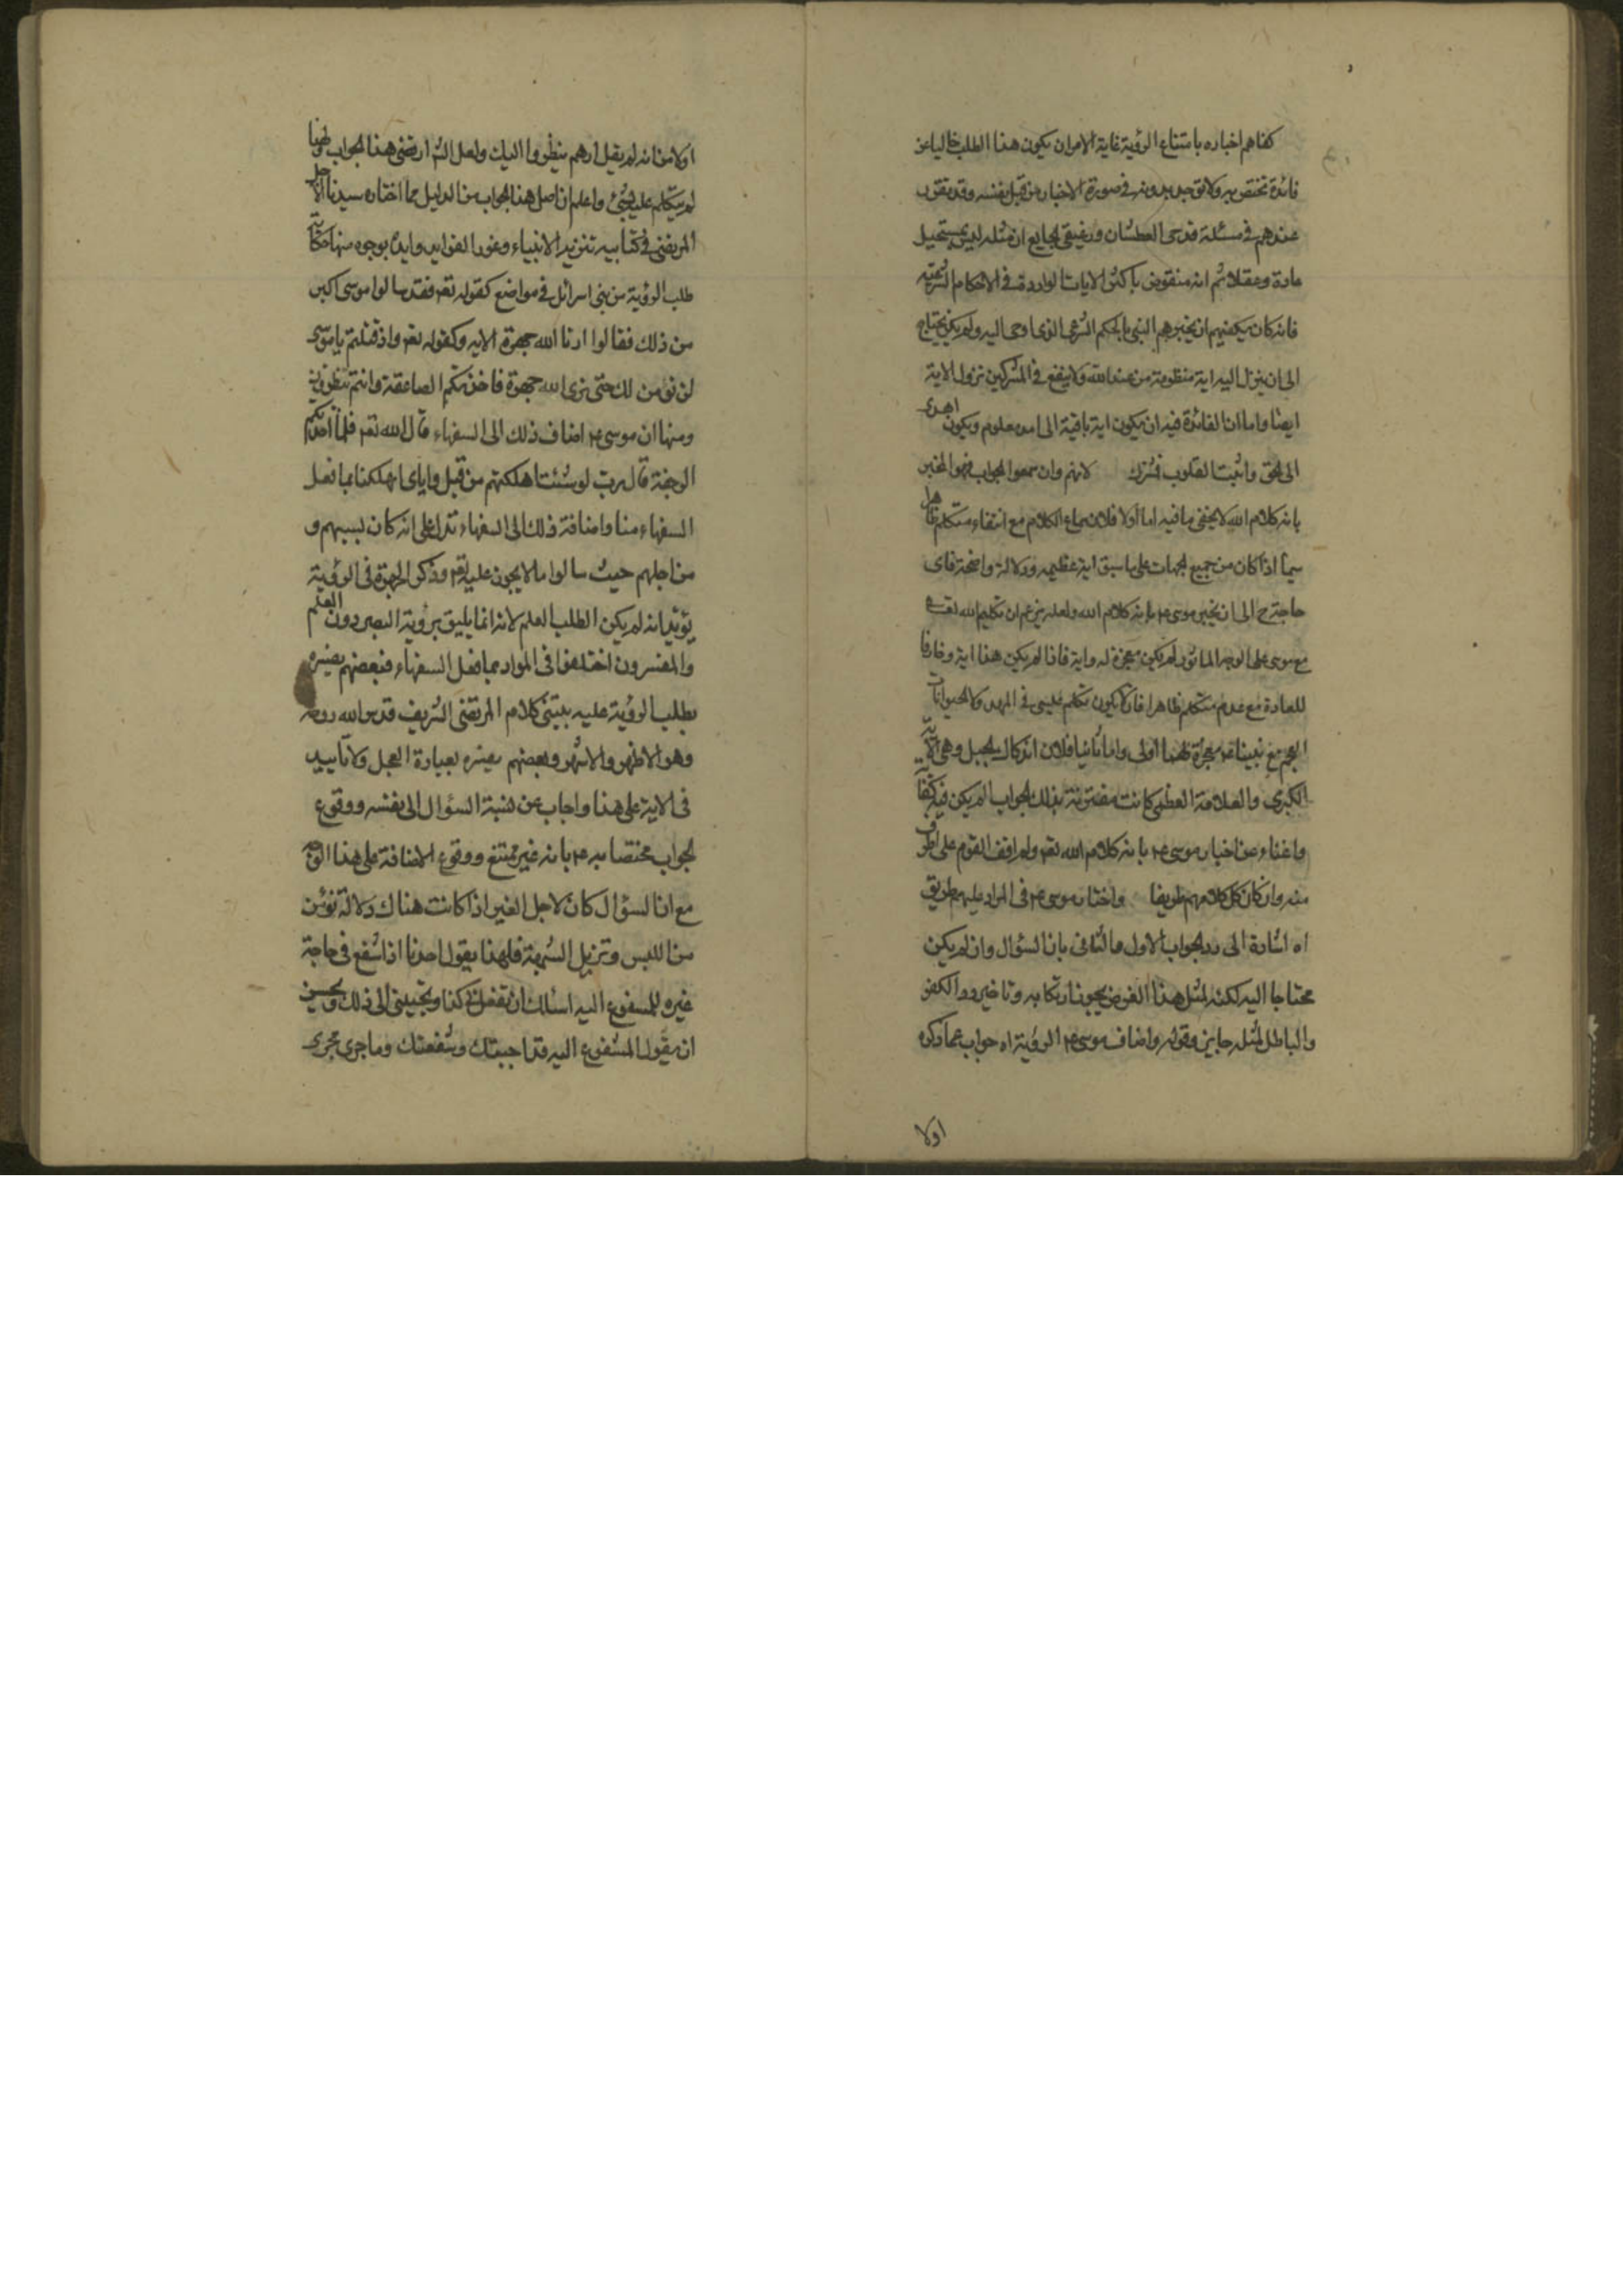 كفاهم اخباره بامتناع الرؤية غاية الامر ان يكون هذا الطلب خاليا عن
فائدة تختص به ولا توجد بدونه في صورة الاخبار من قبل نفسه وقد تقرر
عندهم في مسئلة قدحى العطشان ورغيفي الجايع ان مثله ليس بمستحيل
عادة وعقلا ثم انه منقوض باكثر الايات الواردة في الاحكام الشرعية
فانه كان يكفيهم ان يخبرهم النبي بالحكم الشرعي الذي اوحى اليه ولم يكن يحتاج
الى ان ينزل اليه اية منظومة من عند الله ولا ينفع في المشركين نزول الاية
ايضا واما ان الفائدة فيه ان يكون اية باقية الى امد معلوم ويكون اهدى
الى الحق واثبت للقلوب فمشترك لانهم وان سمعوا الجواب فهو المخبر
بانه كلام الله لا يخفى ما فيه اما اولا فلان سماع الكلام مع انتفاء متكلم ظاهر
سيما اذا كان من جميع الجهات على ما سبق اية عظيمه ودلالة واضحة فاى
حاجة ح الى ان يخبر موسى ع بانه كلام الله ولعله يزعم ان تكليم الله تعالى
مع موسى على الوجه الماثور لم يكن معجزة له واية فاذا لم يكن هذا اية وخارقا
للعادة مع عدم متكلم ظاهرا فان يكون تكلم عيسى في المهد والحيوانات
العجم مع نبينا ع معجزة لهما اولى واما ثانيا فلان اندكاك الجبل وهي الاية
الكبرى والعلامة العظمى كانت مقترنة بذلك الجواب الم يكن فيه كفاية
واغناء عن اخبار موسى ع بانه كلام الله تعم ولم اقف القوم على اطرف
منه وان كان كل كلامهم طريفا واختار موسى ع في الراد عليهم طريق
اه اشارة الى رد الجواب الاول والثاني بان السؤال وان لم يكن
محتاجا اليه لكنه لمثل هذا الغرض يجوز ارتكابه وتاخير رد الكفر
والباطل لمثله جايز وقوله واضاف موسى ع الرؤية اه جواب عما ذكره
اولا
اولا من انه لم يقل ارهم ينظروا اليك ولعل الش ارتضى هذا الجواب ولهذا
لم يتكلم عليه بشئ واعلم ان اصل هذا الجواب من الدليل مما اختاره سيدنا الاجل
المرتضى في كتابيه تنزيه الانبياء وغرر الفوايد وايده بوجوه منها حكاية
طلب الرؤية من بني اسرائل في مواضع كقوله تعم فقد سالوا موسى اكبر
من ذلك فقالوا ارنا الله جهرة الايه وكقوله تعم واذ قلتم يا موسى
لن نؤمن لك حتى نرى الله جهرة فاخذتكم الصاعقة وانتم تنظرون
ومنها ان موسى ع اضاف ذلك الى السفهاء قال الله تعم فلما اخذتهم
الرجفة قال رب لو شئت اهلكتهم من قبل واياى اتهلكنا بما فعل
السفهاء منا واضافة ذلك الى السفهاء تدل على انه كان بسببهم و
من اجلهم حيث سالوا ما لا يجوز عليه تعم وذكر الجهرة في الرؤية
يؤيد انه لم يكن الطلب لعلم لانه انما يليق برؤية البصر دون العلم
والمفسرون اختلفوا في المراد بما فعل السفهاء فبعضهم يفسره
بطلب الرؤية عليه يبتنى كلام المرتضى الشريف قدس الله روحه
وهو الاظهر والاشهر وبعضهم يفسره بعبادة العجل ولا تاييد
في الاية على هذا واجاب عن نسبة السؤال الى نفسه ووقوع
الجواب مختصا به ع بانه غير ممتنع ووقوع الاضافة على هذا الوجه
مع ان السؤال كان لاجل الغير اذا كانت هناك دلالة تؤمن
من اللبس وتزيل الشبهة فلهذا يقول احدنا اذا شفع في حاجة
غيره للمشفوع اليه اسئلك ان تفعل بي كذا وتجيبني الى ذلك ويحسن
ان يقول المشفوع اليه قد اجبتك وشفعتك وما جرى مجرى